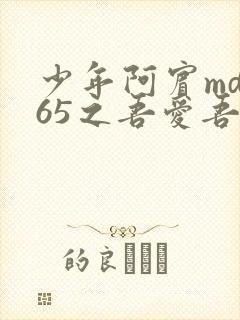 少年阿賓md
65之吾愛吾
的良